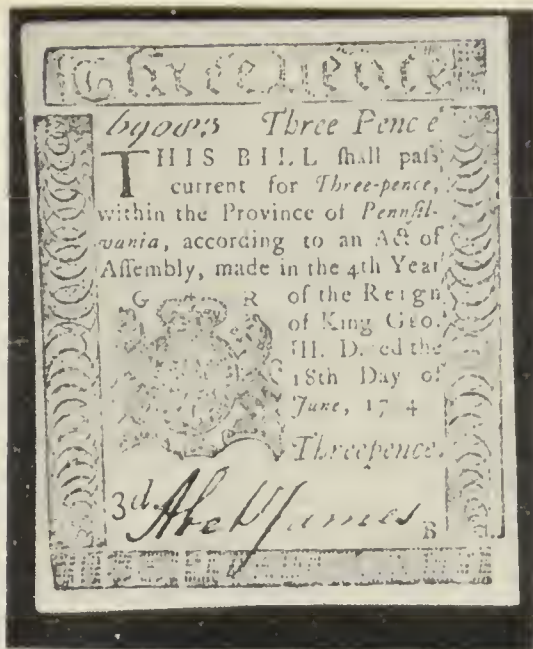 Three pence
Three Pence
THIS BILL ſhall paſs
current for Three-pence,
within the Province of Pennſil-
vania, according to an Act of
Aſſembly, made in the 4th Year
G R of the Reign
of King Geo.
III. D ed the
18th Day of
June, 17 4
Threepence.
3d. Abel James
B